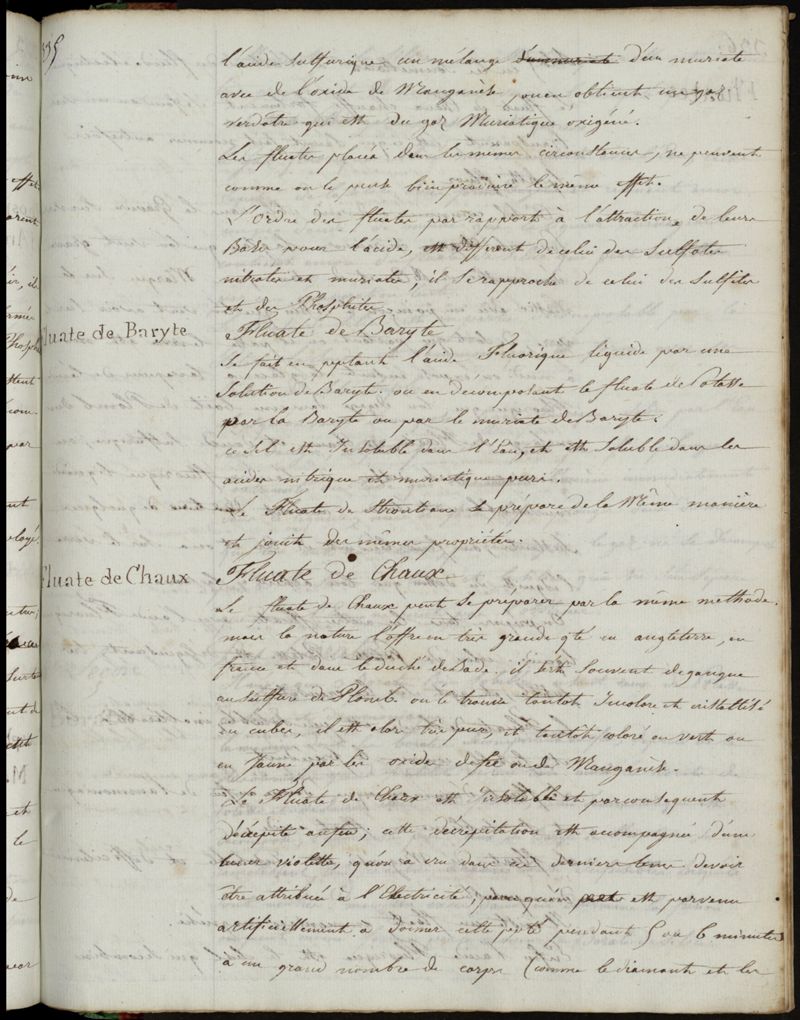 335
l'acide sulfurique un mélange d'un muriate
avec de l'oxide de Manganèse, on en obtient un gaz
verdatre qui est du gaz Muriatique oxigéné.
Les fluates placés dans les memes circonstances, ne peuvent
comme on le pense bien produire le même effet.
L'ordre des fluates par rapport à l'attraction de leurs
Bases pour l'acide, est different de celui des Sulfates
nitrates et muriates, il se rapproche de celui des Sulfites
et des Phosphites
Fluate de Baryte
Fluate de Baryte
Se fait en l'acide Fluorique liquide par une
Solution de Baryte. ou en décomposant le fluate de Potasse
par la Baryte ou par le muriate de Baryte.
ce Sel est Insoluble dans l'Eau, et est Soluble dans les
acides nitrique et muriatique purs.
Le Fluate de Strontiane se prépare de la Même manière
et jouit des mêmes propriétés.
Fluate de Chaux
Fluate de Chaux
Le fluate de Chaux peut se préparer par la même methode.
mais la nature l'offre en très grande qté en angleterre, en
france et dans le duché de Bade. il sert Souvent de gangue
au Sulfure de Plomb. on le trouve tantot Incolore et cristallisé
en cubes, il est alors très pur, et tantôt coloré en vert ou
en Jaune par les oxide de fer ou de Manganèse.
Le Fluate de Chaux est Insoluble et par consequent
décrépite au feu; cette décrépitation est accompagnée d'une
lueur violette, qu'on a cru dans ces derniers tems devoir
être attribuée à l'Electricité, parcequ'on est parvenu
artificiellement a donner cette pendant 5 ou 6 minutes
à un grand nombre de corps (comme le diamant et les